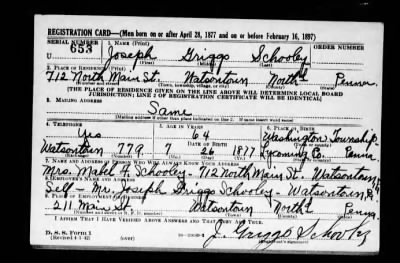 REGISTRATION CARD—(Men born on or after April 28, 1877 and on or before February 16, 1897)
SERIAL NUMBER 1. NAME (Print) ORDER NUMBER
U 653 Joseph Griggs Schooley
2. PLACE OF RESIDENCE (Print)
712 North Main St. Watsontown North'd Penna.
(Town, township, village, or city)
[THE PLACE OF RESIDENCE GIVEN ON THE LINE ABOVE WILL DETERMINE LOCAL BOARD
JURISDICTION; LINE 2 OF REGISTRATION CERTIFICATE WILL BE IDENTICAL]
3. MAILING ADDRESS
Same
[Mailing address if other than place indicated on line 2. If same insert word same]
4. TELEPHONE 5. AGE IN YEARS 6. PLACE OF BIRTH
Yes 64 Washington Township
Watsontown 779 7 26 1877 Lycoming Co. Penna
7. NAME AND ADDRESS OF PERSON WHO WILL ALWAYS KNOW YOUR ADDRESS
Mrs. Mabel F. Schooley - 712 North Main St. Watsontown, Pa
8. EMPLOYER'S NAME AND ADDRESS
Self - Mr. Joseph Griggs Schooley - Watsontown,
9. PLACE OF EMPLOYMENT OR BUSINESS
211 Main St. Watsontown North'd Penna.
I AFFIRM THAT I HAVE VERIFIED ABOVE ANSWERS AND THAT THEY ARE TRUE.
D. S. S. Form 1
(Revised 4-1-42) (over) J. Griggs Schooley
(Registrant's signature)